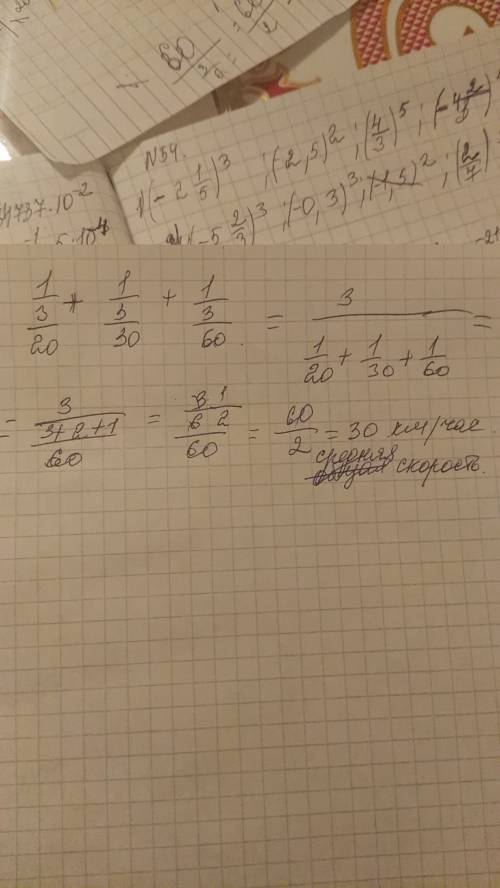 1 60/32 = 60/2
N54.
1) (-2 1/5)^3 ; (-2,5)^2 ; (4/3)^5 ; (-4 2/
(-5 2/3)^3 ; (-0,3)^3 ; (-1,5)^2 ; (2/7)
4737·10^-2
5·10^-4
-21
1/(3/20) + 1/(3/30) + 1/(3/60) = 3/(1/20 + 1/30 + 1/60) =
= 3/((3+2+1)/60) = 3 1/(6 2/60) = 60/2 = 30 км/час
средняя
скорость.